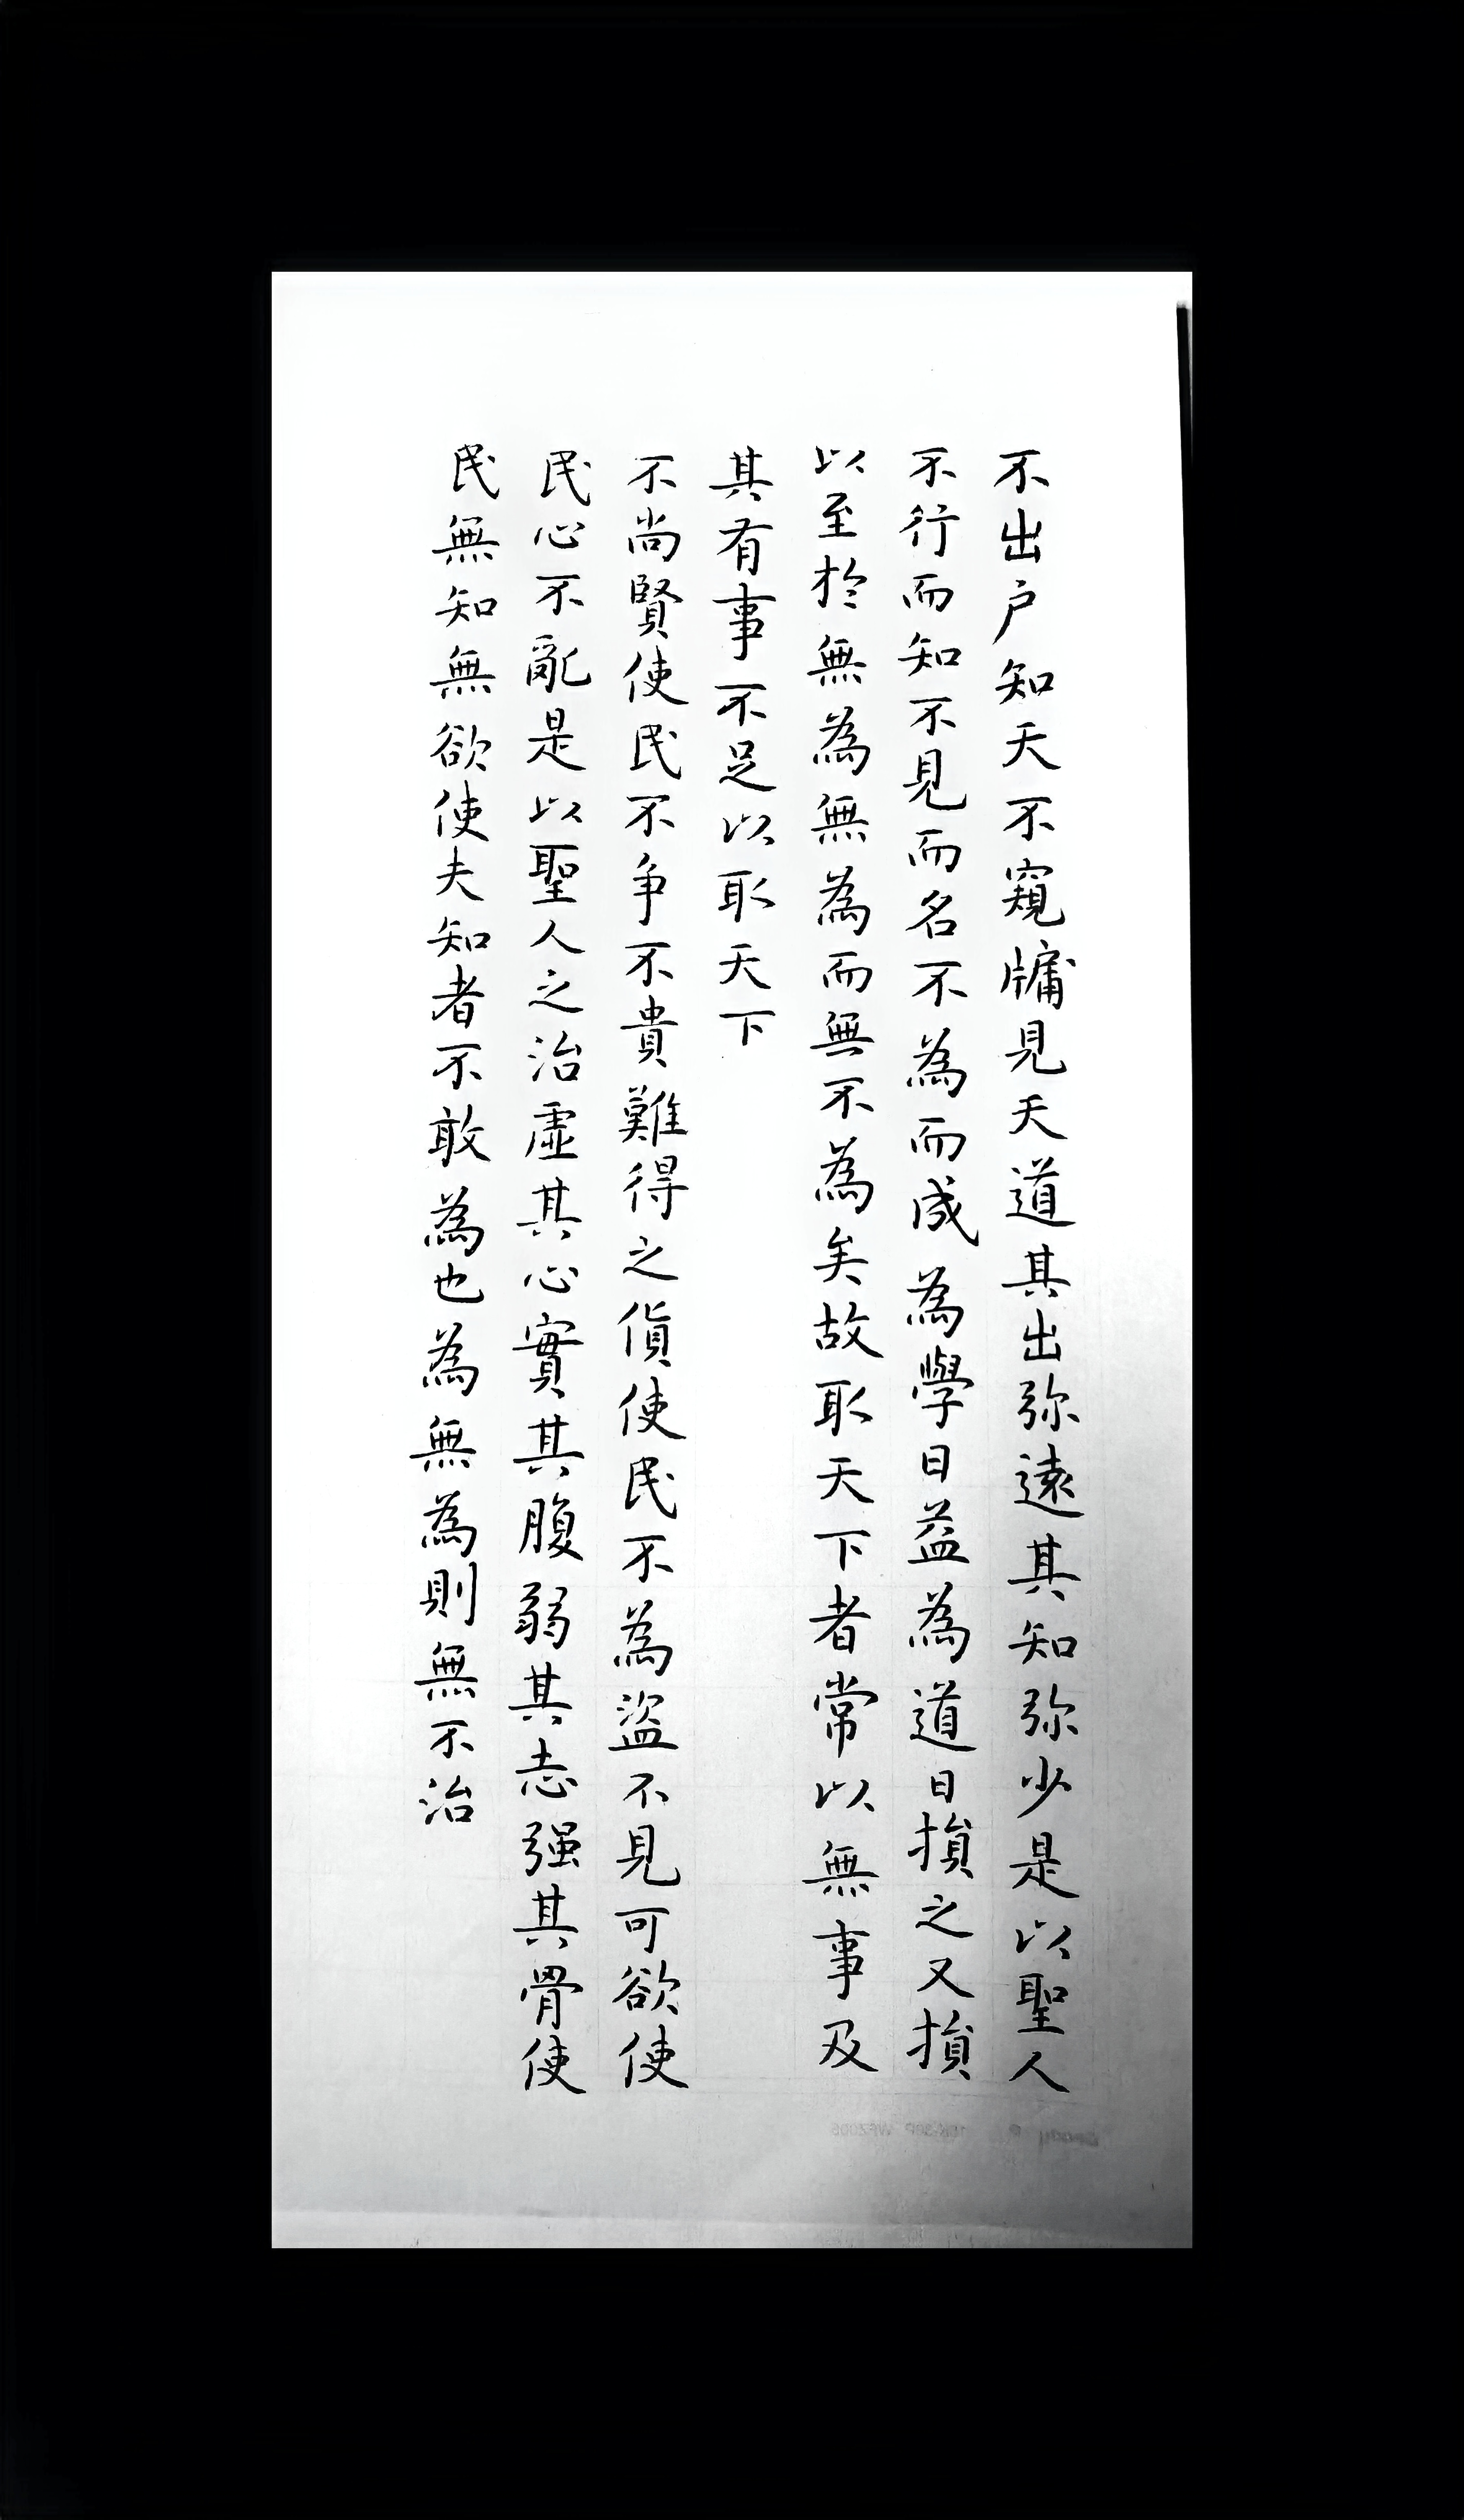 不出户知天不窺牖見天道其出弥遠其知弥少是以聖人
不行而知不見而名不為而成為學日益為道日損之又損
以至於無為無為而無不為矣故取天下者常以無事及
其有事不足以取天下
不尚賢使民不争不貴難得之貨使民不為盜不見可欲使
民心不亂是以聖人之治虛其心實其腹弱其志强其骨使
民無知無欲使夫知者不敢為也為無為則無不治